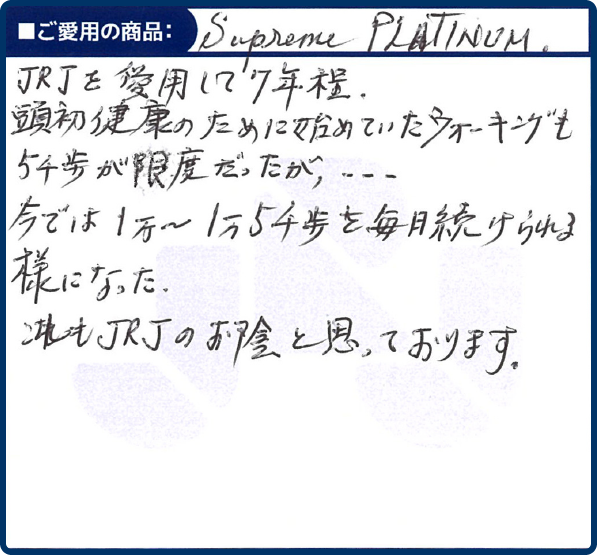 ■ご愛用の商品: Supreme PLATINUM.
JRJを愛用して7年程.
頭初健康のために始めていたウォーキングも
5千歩が限度だったが, ---
今では1万〜1万5千歩を毎日続けられる
様になった.
これもJRJのお陰と思っております.